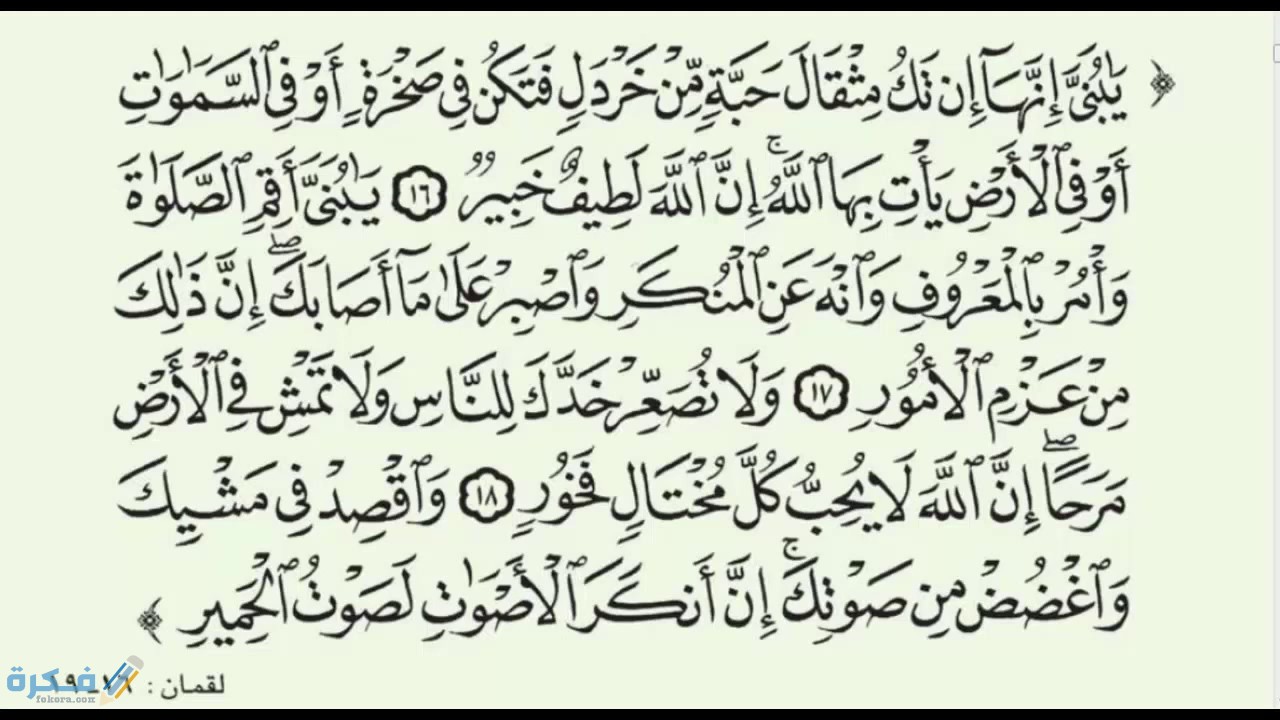 ﴿ يَٰبُنَيَّ إِنَّهَآ إِن تَكُ مِثْقَالَ حَبَّةٍ مِّنْ خَرْدَلٍ فَتَكُن فِي صَخْرَةٍ أَوْ فِي ٱلسَّمَٰوَٰتِ
أَوْ فِي ٱلْأَرْضِ يَأْتِ بِهَا ٱللَّهُۚ إِنَّ ٱللَّهَ لَطِيفٌ خَبِيرٌ ١٦ يَٰبُنَيَّ أَقِمِ ٱلصَّلَوٰةَ
وَأْمُرْ بِٱلْمَعْرُوفِ وَٱنْهَ عَنِ ٱلْمُنكَرِ وَٱصْبِرْ عَلَىٰ مَآ أَصَابَكَۖ إِنَّ ذَٰلِكَ
مِنْ عَزْمِ ٱلْأُمُورِ ١٧ وَلَا تُصَعِّرْ خَدَّكَ لِلنَّاسِ وَلَا تَمْشِ فِي ٱلْأَرْضِ
مَرَحًاۖ إِنَّ ٱللَّهَ لَا يُحِبُّ كُلَّ مُخْتَالٍ فَخُورٍ ١٨ وَٱقْصِدْ فِي مَشْيِكَ
وَٱغْضُضْ مِن صَوْتِكَۚ إِنَّ أَنكَرَ ٱلْأَصْوَٰتِ لَصَوْتُ ٱلْحَمِيرِ ﴾
لقمان : ١٦ - ١٩
فكرة
fokora.com